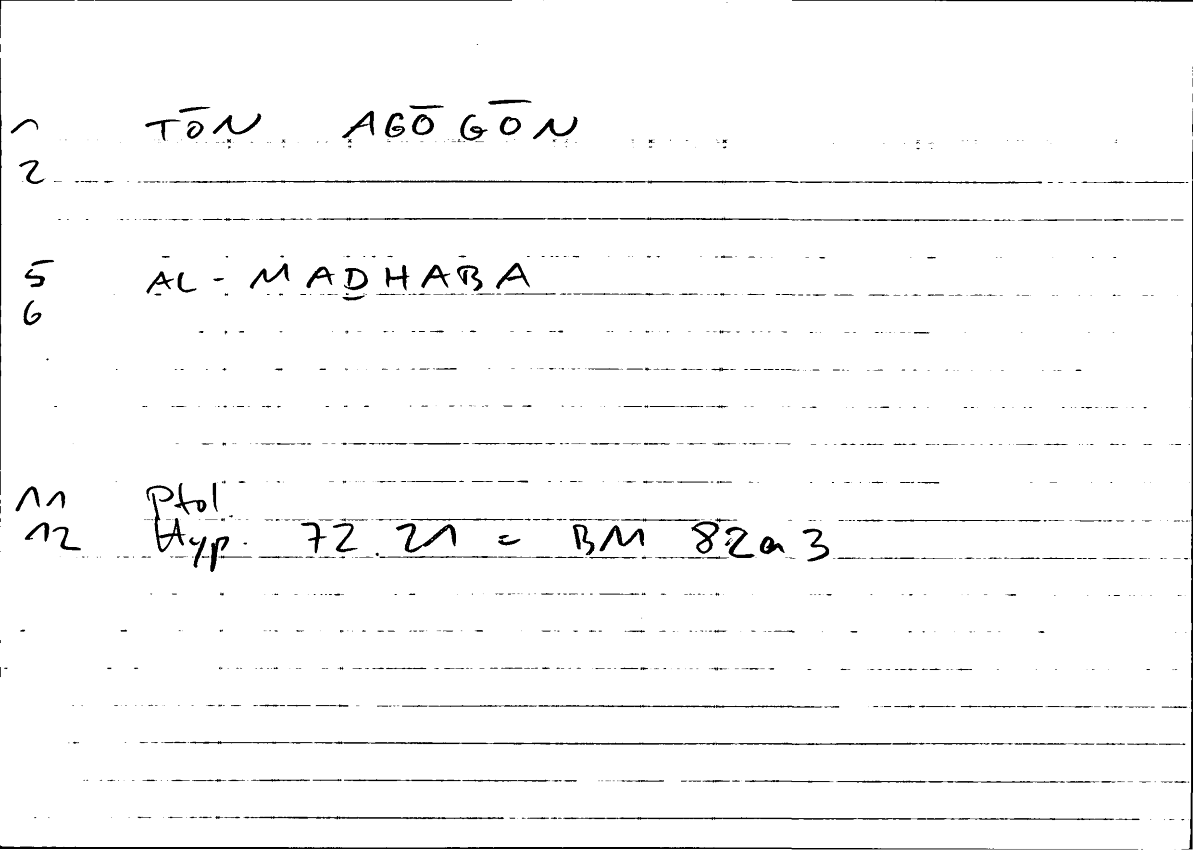 1 TŌN AGŌGŌN
2
5 AL-MAḎHABA
6
11 Ptol.
12 Hyp. 72.21 = BM 82a3